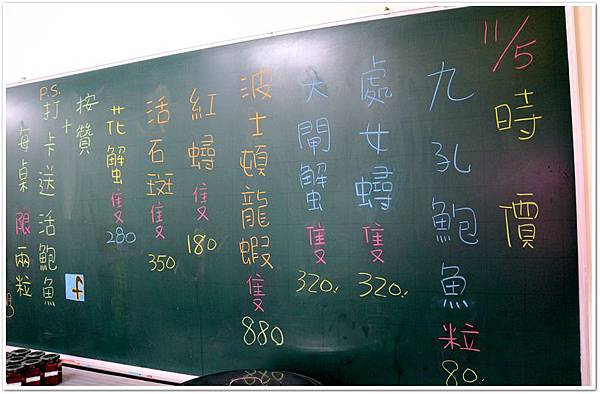 11/5
時價
九孔鮑魚粒80.
處女蟳隻320.
大閘蟹隻320.
波士頓龍蝦隻880
紅蟳隻180
活石斑隻350
花蟹隻280
按讚
+
P.S.打卡送活鮑魚
每桌限兩粒
f
880